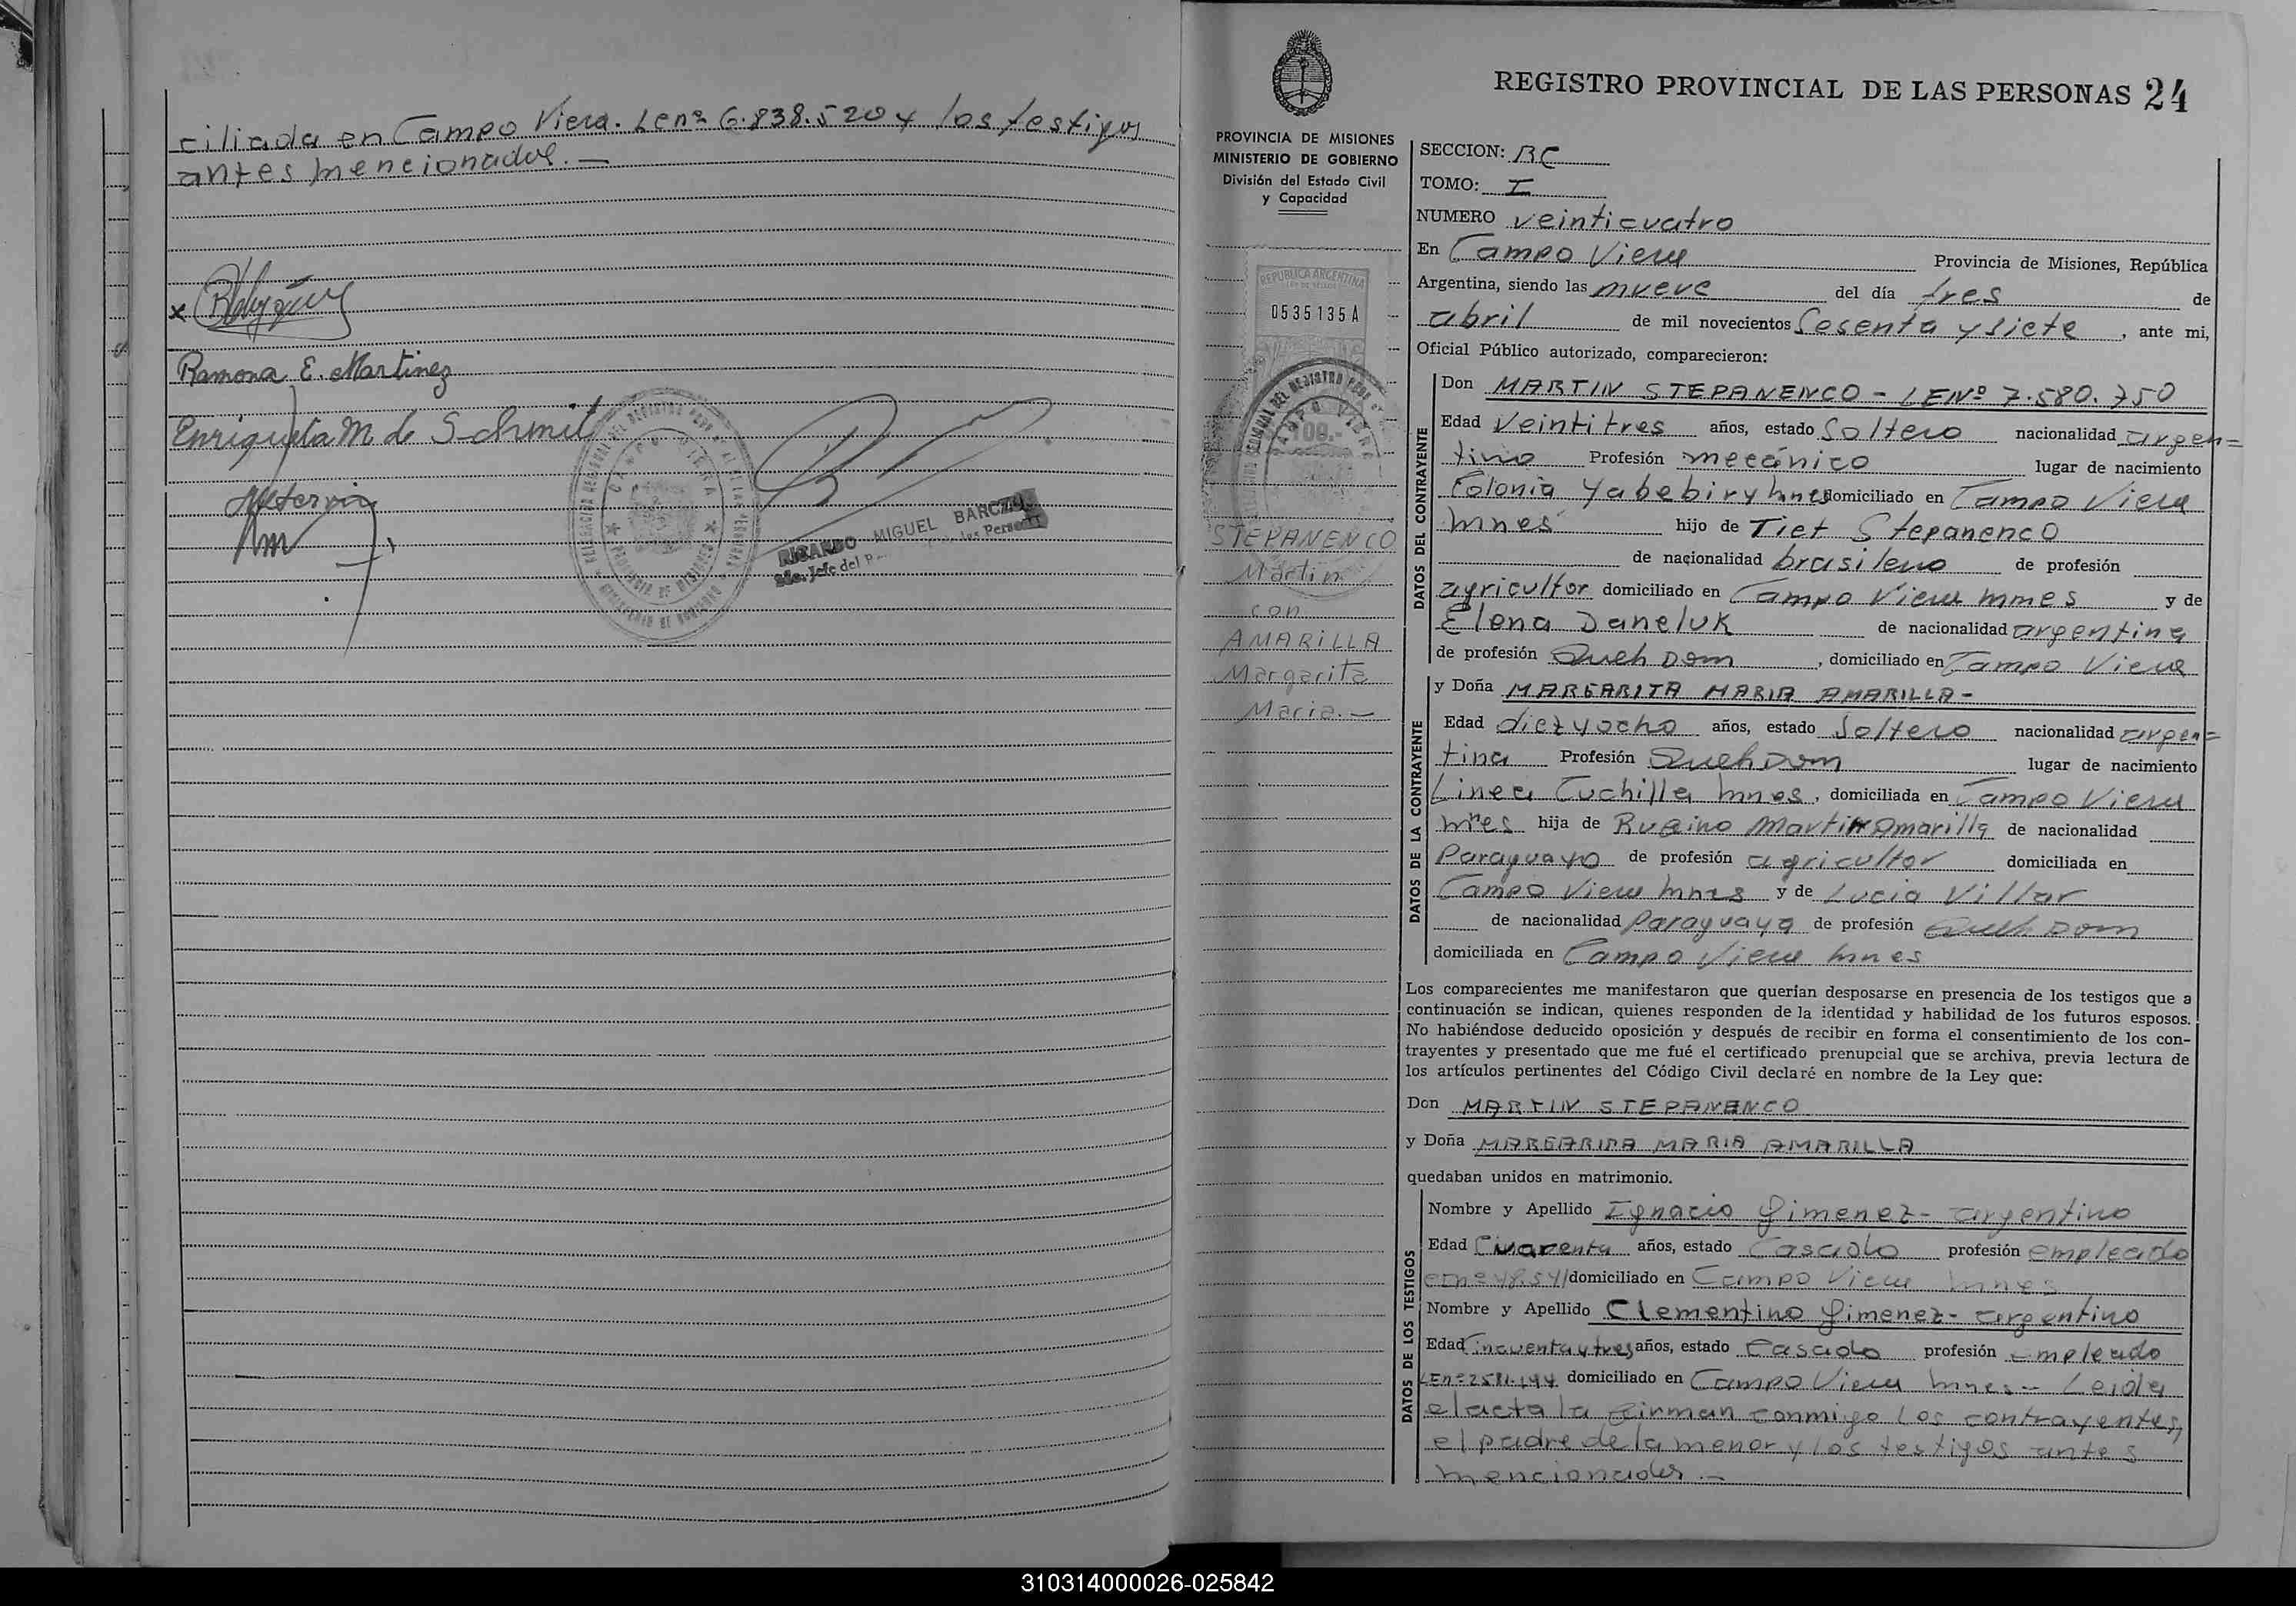 ciliada en Campo Viera. Len° 6.838.520 y los testigos
antes mencionados.—
x
Ramona E. Martinez
Enriqueta M de Schmit
DELEGACION REGIONAL DEL REGISTRO PCIAL DE LAS PERSONAS
CAMPO VIERA
PROVINCIA DE MISIONES
MINISTERIO DE GOBIERNO
RICARDO MIGUEL
Jefe del
REGISTRO PROVINCIAL DE LAS PERSONAS 24
PROVINCIA DE MISIONES
MINISTERIO DE GOBIERNO
División del Estado Civil
y Capacidad
REPUBLICA ARGENTINA
0535135A
STEPANENCO
Martin
con
AMARILLA
Margarita
Maria.—
SECCION: BC
TOMO: I
NUMERO veinticuatro
En Campo Viera Provincia de Misiones, República
Argentina, siendo las nueve del día tres de
abril de mil novecientos Sesenta y siete, ante mi,
Oficial Público autorizado, comparecieron:
DATOS DEL CONTRAYENTE
Don MARTIN STEPANENCO - LENº 7.580.750
Edad Veintitres años, estado Soltero nacionalidad argen=
tino Profesión mecánico lugar de nacimiento
Colonia Yabebiry Mnes domiciliado en Campo Viera
Mnes hijo de Tiet Stepanenco
de nacionalidad brasileno de profesión
agricultor domiciliado en Campo Viera Mnes y de
Elena Daneluk de nacionalidad argentina
de profesión Queh Dom, domiciliado en Campo Viera
DATOS DE LA CONTRAYENTE
y Doña MARGARITA MARIA AMARILLA-
Edad diez y ocho años, estado Soltero nacionalidad argen=
tina Profesión Queh Dom lugar de nacimiento
Linea Cuchilla Mnes, domiciliada en Campo Viera
Mnes hija de Rufino Martin Amarilla de nacionalidad
Paraguayo de profesión agricultor domiciliada en
Campo Viera Mnes y de Lucia Villar
de nacionalidad Paraguaya de profesión Queh Dom
domiciliada en Campo Viera Mnes
Los comparecientes me manifestaron que querían desposarse en presencia de los testigos que a
continuación se indican, quienes responden de la identidad y habilidad de los futuros esposos.
No habiéndose deducido oposición y después de recibir en forma el consentimiento de los con-
trayentes y presentado que me fué el certificado prenupcial que se archiva, previa lectura de
los artículos pertinentes del Código Civil declaré en nombre de la Ley que:
Don MARTIN STEPANENCO
y Doña MARGARITA MARIA AMARILLA
quedaban unidos en matrimonio.
DATOS DE LOS TESTIGOS
Nombre y Apellido Ignacio Gimenez- argentino
Edad Cuarenta años, estado Casado profesión empleado
domiciliado en Campo Viera Mnes
Nombre y Apellido Clementino Gimenez- argentino
Edad Cincuenta y tres años, estado Casado profesión empleado
LEnº 2581.144 domiciliado en Campo Viera Mnes- Leida
el acta la firman conmigo los contrayentes,
el padre de la menor y los testigos antes
mencionados.—
310314000026-025842